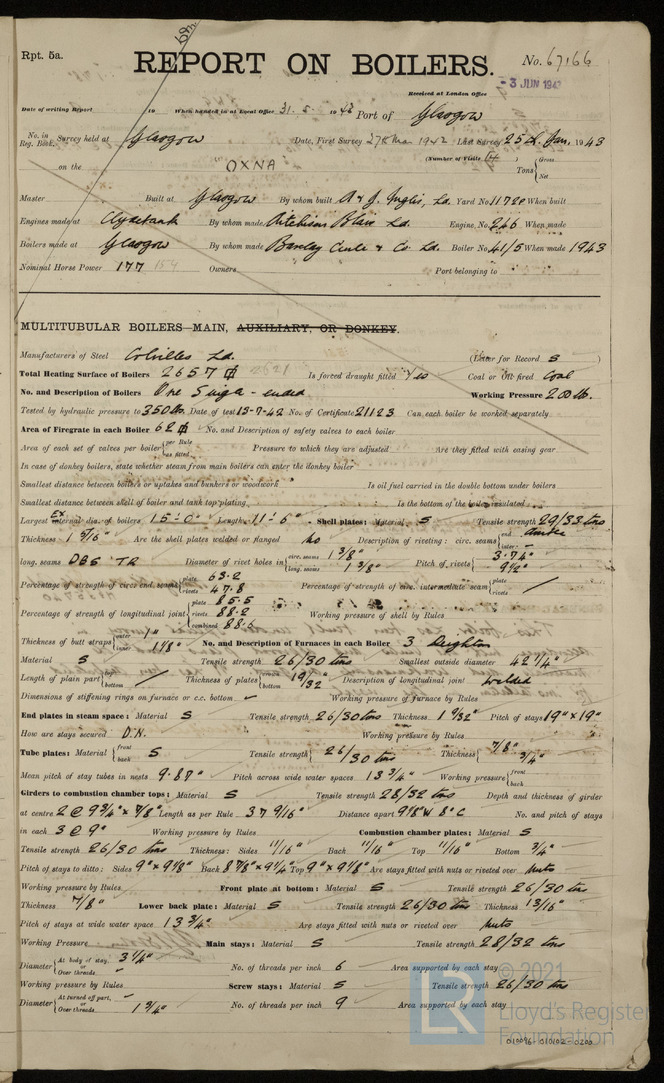 Rpt. 5a.
REPORT ON BOILERS.
No. 67166
Received at London Office
- 3 JUN 194
Date of writing Report 19 When handed in at Local Office 31. 5. 1943 Port of Glasgow
No. in Reg. Book. Survey held at Glasgow Date, First Survey 27th Mar 1942 Last Survey 25th Jan. 1943
(Number of Visits 14 )
on the "OXNA" Tons { Gross Net
Master Built at Glasgow By whom built A & J. Inglis, Ld. Yard No 1172P When built
Engines made at Clydebank By whom made Aitchison Blair Ld. Engine No 246 When made
Boilers made at Glasgow By whom made Barclay Curle & Co Ld. Boiler No 41/5 When made 1943
Nominal Horse Power 177 154 Owners Port belonging to
MULTITUBULAR BOILERS MAIN, AUXILIARY, OR DONKEY.
Manufacturers of Steel Colvilles Ld. (Letter for Record S )
Total Heating Surface of Boilers 2657 2621 Is forced draught fitted Yes Coal or Oil fired Coal
No. and Description of Boilers One Single-ended Working Pressure 200 lb.
Tested by hydraulic pressure to 350 lbs. Date of test 13-7-42 No. of Certificate 21123 Can each boiler be worked separately
Area of Firegrate in each Boiler 62 No. and Description of safety valves to each boiler
Area of each set of valves per boiler { per Rule as fitted Pressure to which they are adjusted Are they fitted with easing gear
In case of donkey boilers, state whether steam from main boilers can enter the donkey boiler
Smallest distance between boilers or uptakes and bunkers or woodwork Is oil fuel carried in the double bottom under boilers
Smallest distance between shell of boiler and tank top plating Is the bottom of the boiler insulated
Largest Ex internal dia. of boilers 15'-0" Length 11'-6" Shell plates: Material S Tensile strength 29/33 tons
Thickness 1 5/16" Are the shell plates welded or flanged No Description of riveting: circ. seams { end double inter -
long. seams DBS TR Diameter of rivet holes in { circ. seams 1 3/8" long. seams 1 3/8" Pitch of rivets { 3.74" 9 1/2"
Percentage of strength of circ. end seams { plate 63.2 rivets 47.8 Percentage of strength of circ. intermediate seam { plate rivets /
Percentage of strength of longitudinal joint { plate 85.5 rivets 88.2 combined 88.6 Working pressure of shell by Rules
Thickness of butt straps { outer 1" inner 1 1/8" No. and Description of Furnaces in each Boiler 3 Deighton
Material S Tensile strength 26/30 tons Smallest outside diameter 42 1/4"
Length of plain part { top bottom / Thickness of plates { crown bottom 19/32" Description of longitudinal joint welded
Dimensions of stiffening rings on furnace or c.c. bottom - Working pressure of furnace by Rules
End plates in steam space: Material S Tensile strength 26/30 tons Thickness 1 9/32" Pitch of stays 19" x 19"
How are stays secured D.N. Working pressure by Rules
Tube plates: Material { front back S Tensile strength { 26/30 tons Thickness { 7/8" 3/4"
Mean pitch of stay tubes in nests 9.87" Pitch across wide water spaces 13 3/4" Working pressure { front back
Girders to combustion chamber tops: Material S Tensile strength 28/32 tons Depth and thickness of girder
at centre 2 @ 9 3/4" x 7/8" Length as per Rule 37 9/16" Distance apart 9 1/8" No. and pitch of stays
in each 3 @ 9" Working pressure by Rules Combustion chamber plates: Material S
Tensile strength 26/30 tons Thickness: Sides 11/16" Back 11/16" Top 11/16" Bottom 3/4"
Pitch of stays to ditto: Sides 9" x 9 1/8" Back 8 7/8" x 9 1/4" Top 9" x 9 1/8" Are stays fitted with nuts or riveted over nuts
Working pressure by Rules Front plate at bottom: Material S Tensile strength 26/30 tons
Thickness 7/8" Lower back plate: Material S Tensile strength 26/30 tons Thickness 13/16"
Pitch of stays at wide water space 13 3/4" Are stays fitted with nuts or riveted over nuts
Working Pressure Main stays: Material S Tensile strength 28/32 tons
Diameter { At body of stay, 3 1/4" or Over threads. No. of threads per inch 6 Area supported by each stay
Working pressure by Rules Screw stays: Material S Tensile strength 26/30 tons
Diameter { At turned off part, - or Over threads. 1 3/4" No. of threads per inch 9 Area supported by each stay
© 2021
Lloyd's Register
Foundation
010096-010102-0200